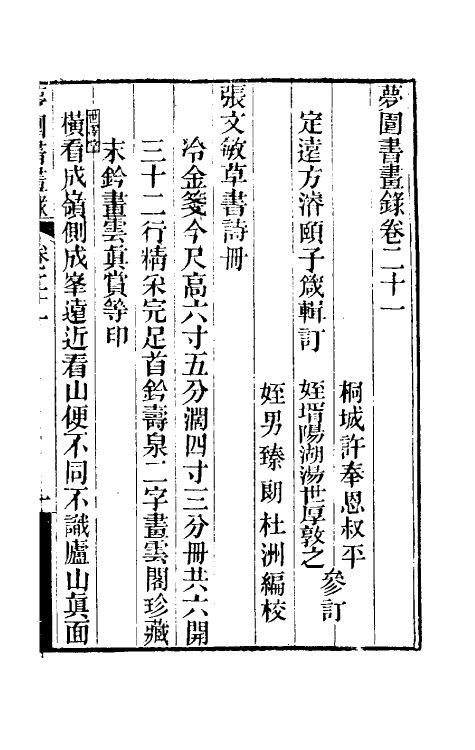 夢園書畫錄卷二十一
桐城許奉恩叔平
定遠方濬頤子箴輯訂
姪壻陽湖湯世厚敦之
參訂
姪男臻朗杜洲編校
張文敏草書詩冊
冷金箋今尺高六寸五分濶四寸三分冊共六開
三十二行精采完足首鈐壽泉二字畫雲閣珍藏
末鈐畫雲眞賞等印
橫看成嶺側成峯遠近看山便不同不識廬山眞面
夢園書畫錄 卷二十一